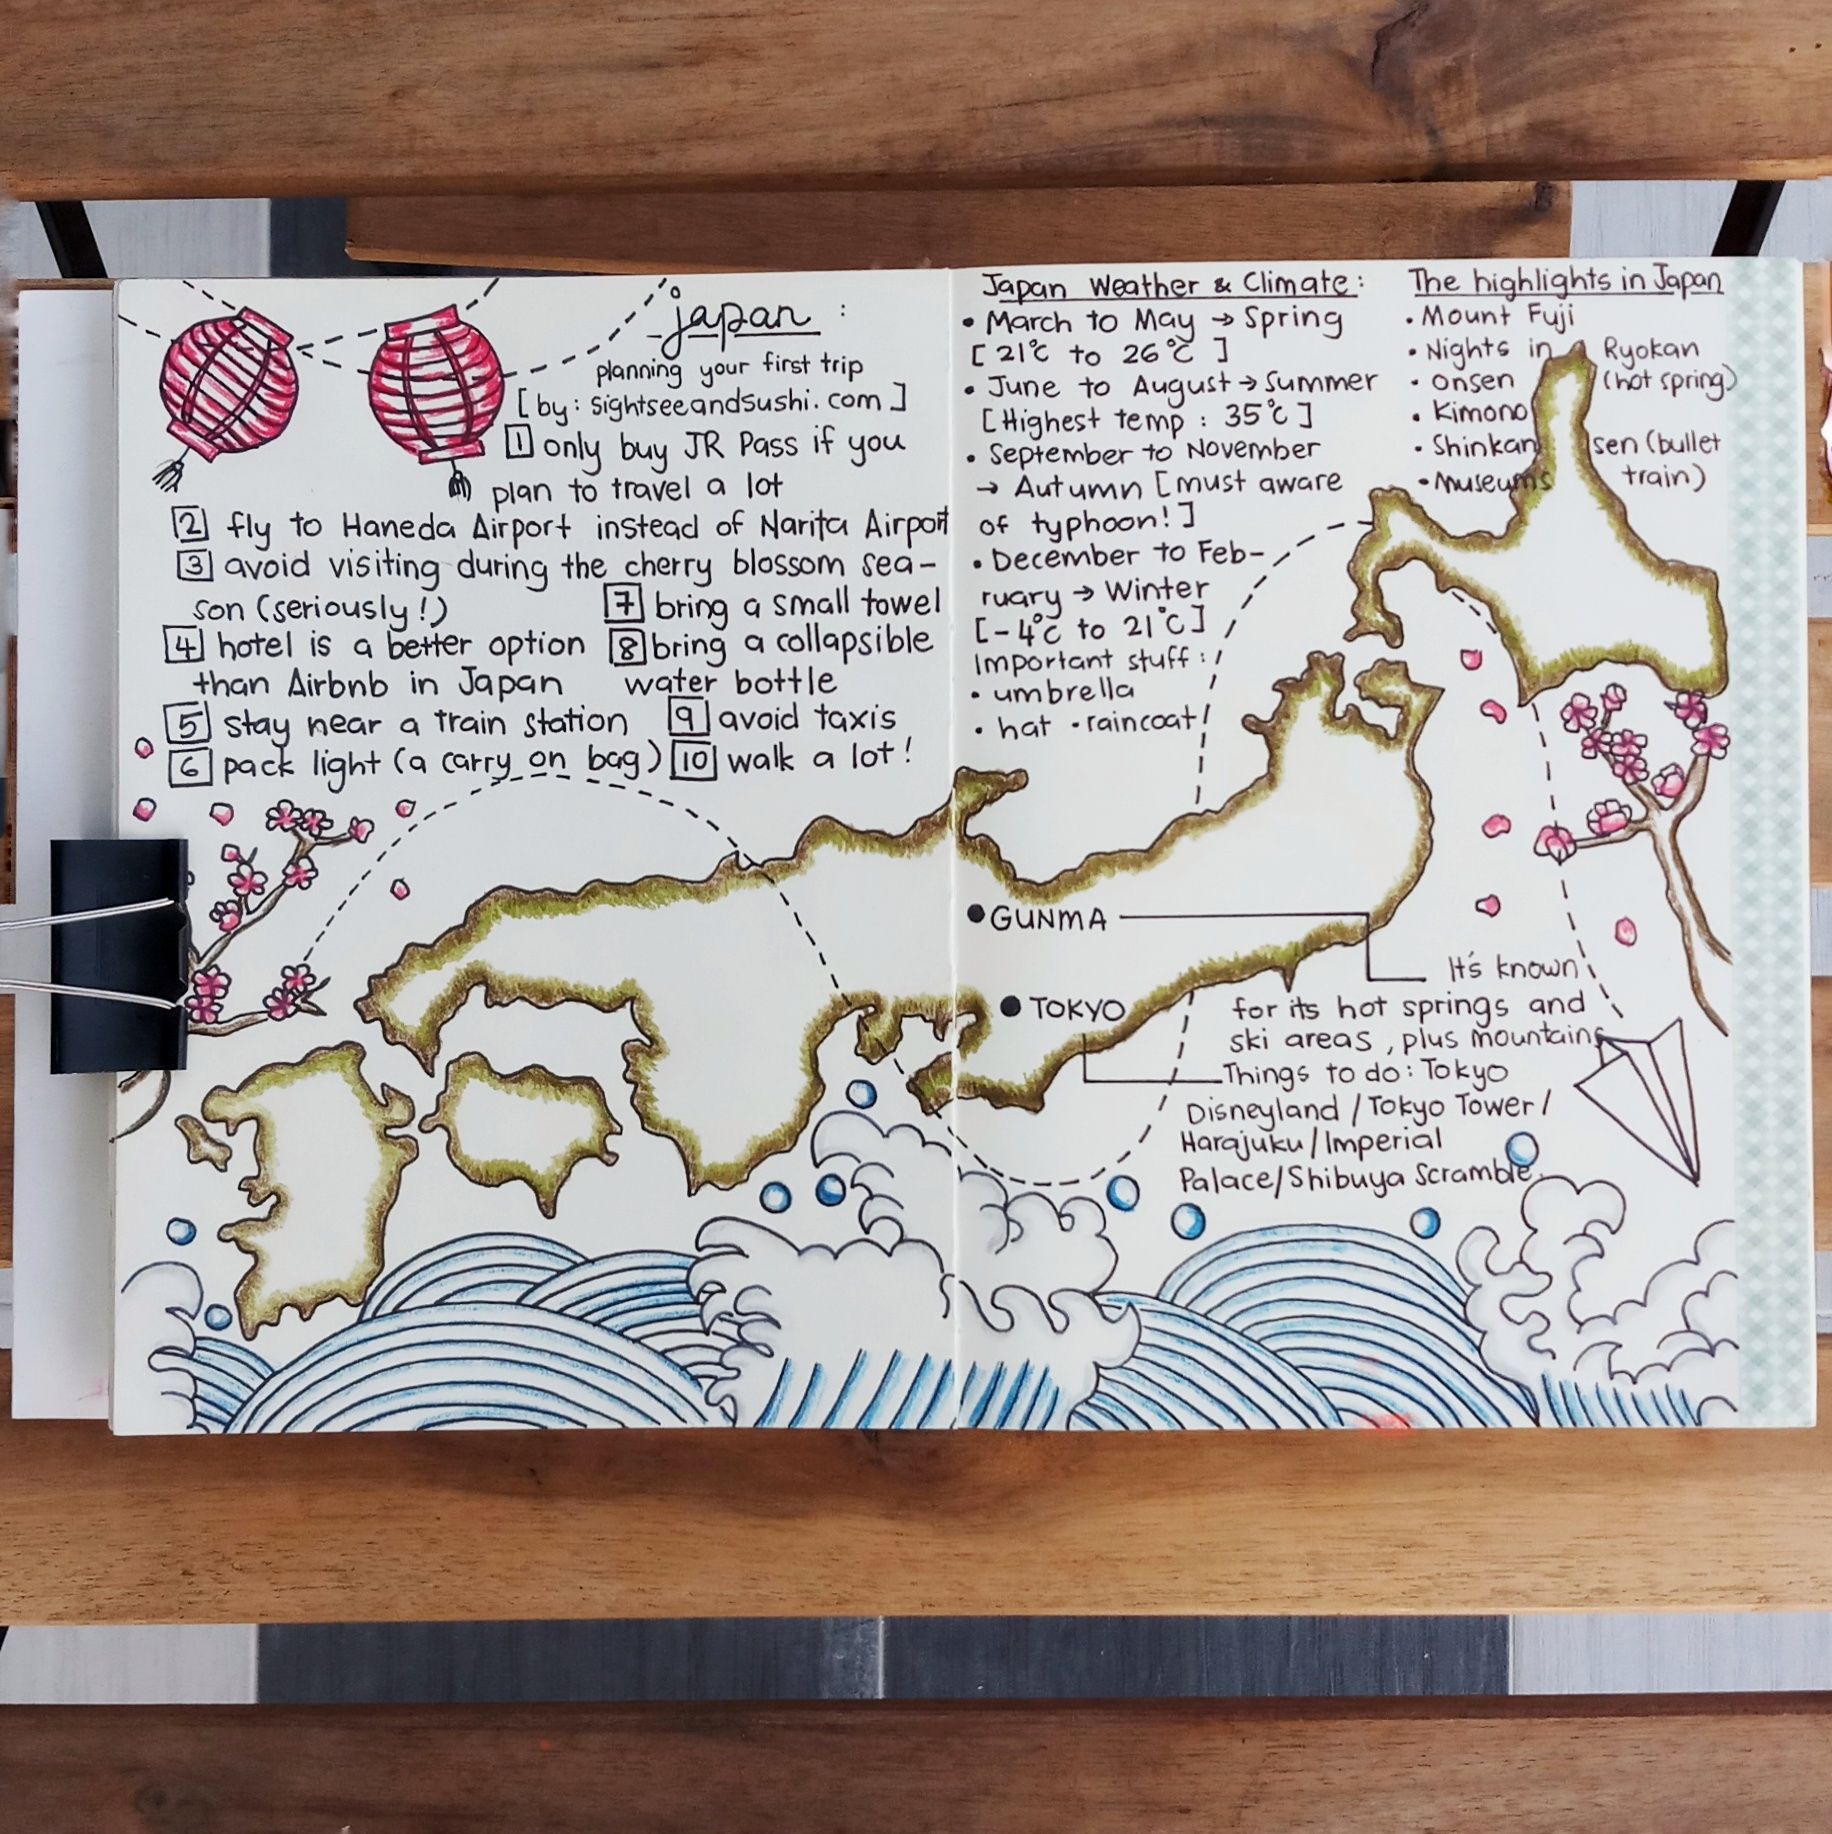 japan :
planning your first trip
[by: sightseeandsushi.com]
1 only buy JR Pass if you
plan to travel a lot
2 fly to Haneda Airport instead of Narita Airport
3 avoid visiting during the cherry blossom sea-
son (seriously!)
4 hotel is a better option
than Airbnb in Japan
5 stay near a train station
6 pack light (a carry on bag)
7 bring a small towel
8 bring a collapsible
water bottle
9 avoid taxis
10 walk a lot!
Japan Weather & Climate:
• March to May → Spring
[21°c to 26°c]
• June to August → Summer
[Highest temp : 35°c]
• September to November
→ Autumn [must aware
of typhoon!]
• December to Feb-
ruary → Winter
[-4°c to 21°c]
Important stuff:
• umbrella
• hat • raincoat
The highlights in Japan
• Mount Fuji
• Nights in a Ryokan
• onsen (hot spring)
• Kimono
• Shinkansen (bullet
train)
• Museums
• GUNMA
It's known
for its hot springs and
ski areas, plus mountains
• TOKYO
Things to do: Tokyo
Disneyland / Tokyo Tower /
Harajuku / Imperial
Palace/Shibuya Scramble.